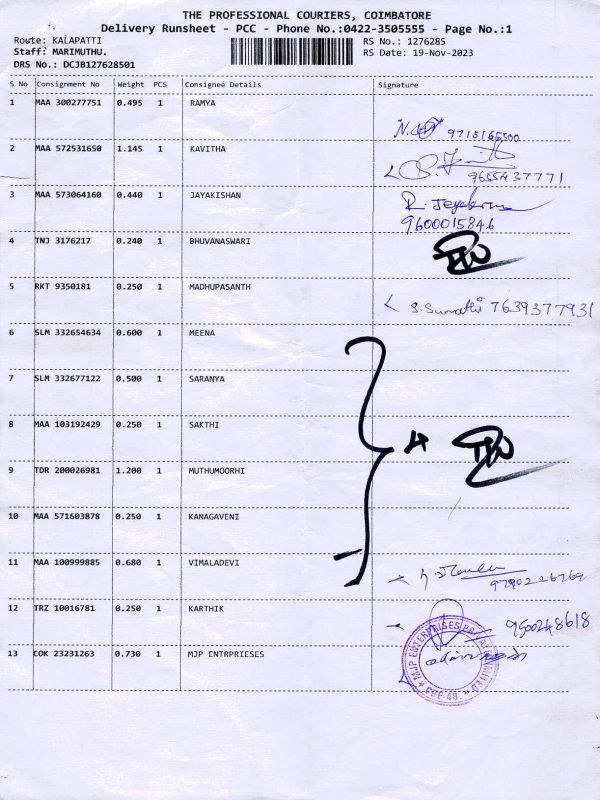 THE PROFESSIONAL COURIERS, COIMBATORE
Delivery Runsheet - PCC - Phone No.:0422-3505555 - Page No.:1
Route: KALAPATTI RS No.: 1276285
Staff: MARIMUTHU. RS Date: 19-Nov-2023
DRS No.: DCJB127628501
S No Consignment No Weight PCS Consignee Details Signature
1 MAA 300277751 0.495 1 RAMYA
9715165500
2 MAA 572531650 1.145 1 KAVITHA
9655437771
3 MAA 573064160 0.440 1 JAYAKISHAN
9600015846
4 TNJ 3176217 0.240 1 BHUVANASWARI
5 RKT 9350181 0.250 1 MADHUPASANTH
S. Sumathi 7639377931
6 SLM 332654634 0.600 1 MEENA
7 SLM 332677122 0.500 1 SARANYA
8 MAA 103192429 0.250 1 SAKTHI
4
9 TDR 200026981 1.200 1 MUTHUMOORHI
10 MAA 571603878 0.250 1 KANAGAVENI
11 MAA 100999885 0.680 1 VIMALADEVI
12 TRZ 10016781 0.250 1 KARTHIK
13 COK 23231263 0.730 1 MJP ENTRPRIESES
MJP ENTERPRISES PRIVATE LIMITED
CBE-48.